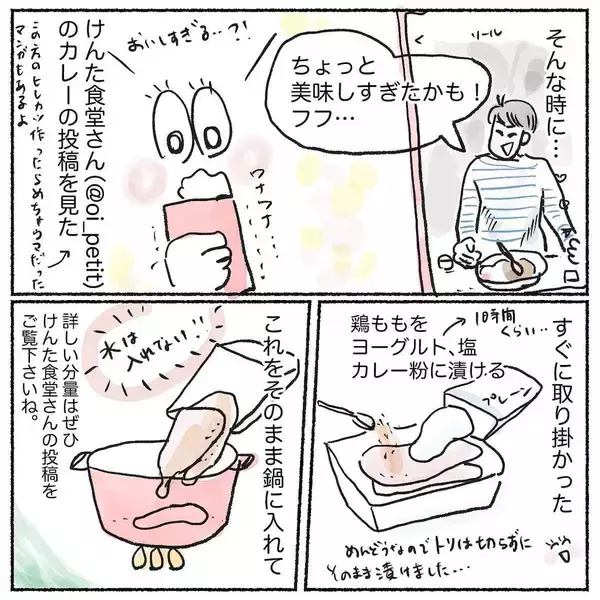 そんな時に…
リール
ちょっと
美味しすぎたかも！
フフ…
おいしすぎる…?!
けんた食堂さん(@oi_petit)
のカレーの投稿を見た
この方のヒレカツ作ったらめちゃウマだった
マンガもあるよ
ワナワナ…
すぐに取り掛かった
10時間
くらい…
鶏ももを
ヨーグルト、塩
カレー粉に漬ける
プレーン
めんどうなのでトリは切らずに
そのまま漬けました…
これをそのまま鍋に入れて
水は
入れてない!!
詳しい分量はぜひ
けんた食堂さんの投稿を
ご覧下さいね。